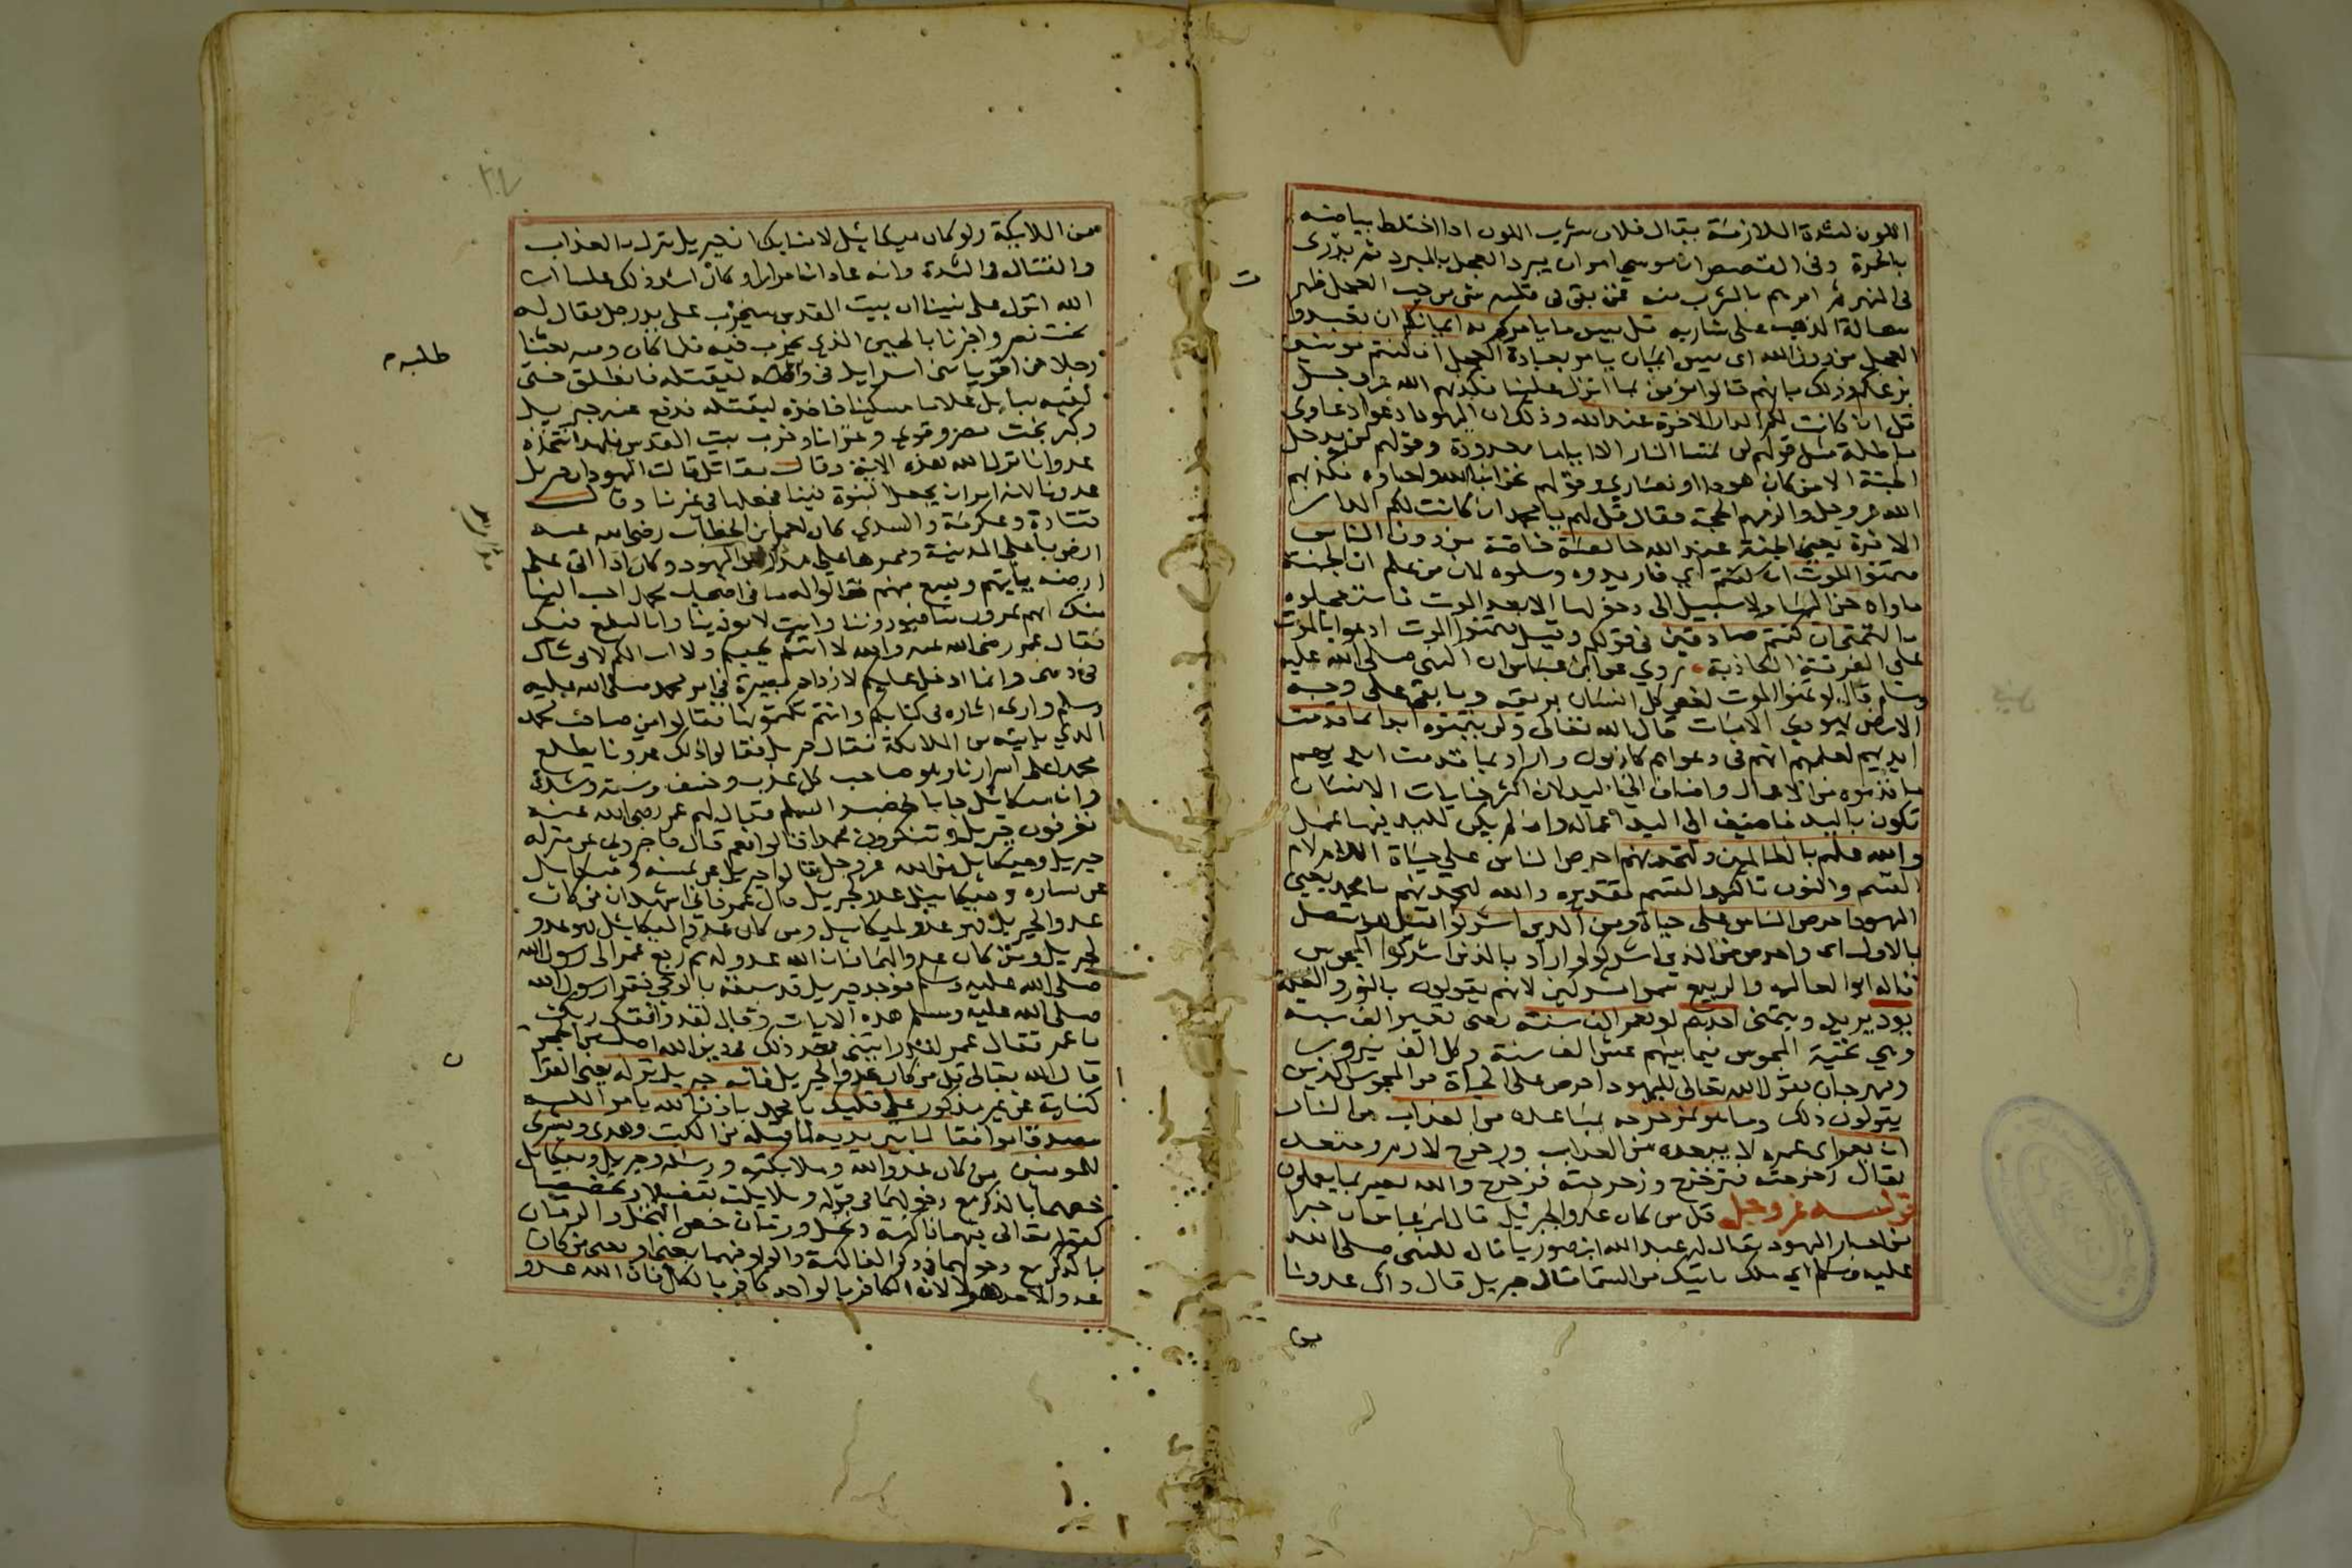 اللون لشدة الملازمة يقال فلان شرب اللون اذا اختلط بياضه
بالحمرة وفي القصص ان موسى امر ان يبرد العجل بالمبرد ثم يذرى
في النهر ثم امرهم بالشرب منه فمن بقي في قلبه شي من حب العجل ظهر
سحالة الذهب على شاربه قل بيس ما يامركم به ايمانكم ان تعبدوا
العجل من دون الله اى بيس ايمان يامر بعبادة العجل ان كنتم مومنين
بزعمكم وذلك بانهم قالوا نومن بما انزل علينا فكذبهم الله عز وجل
قل ان كانت لكم الدار الاخرة عند الله وذلك ان اليهود ادعوا دعاوى
باطلة مثل قولهم لن تمسنا النار الا اياما معدودة وقولهم لن يدخل
الجنة الا من كان هودا او نصارى وقولهم نحن ابنا الله واحباوه فكذبهم
الله عز وجل والزمهم الحجة فقال قل لهم يا محمد ان كانت لكم الدار
الاخرة يعني الجنة عند الله خالصة خاصة من دون الناس
فتمنوا الموت ان كنتم اي فاريدوه وسلوه لان من علم ان الجنة
ماواه حن اليها ولا سبيل الى دخولها الا بعد الموت فاستعجلوه
بالتمني ان كنتم صادقين في قولكم وقيل فتمنوا الموت ادعوا بالموت
على الفرقة الكاذبة روي عن ابن عباس ان النبي صلى الله عليه
وسلم قال لو تمنوا الموت لغص كل انسان بريقه وما بقي على وجه
الارض يهودي الا مات قال الله تعالى ولن يتمنوه ابدا بما قدمت
ايديهم لعلمهم انهم في دعواهم كاذبون واراد بما قدمت ايديهم
ما قدموه من الاعمال واضاف الى اليد لان اكثر جنايات الانسان
تكون باليد فاضيف الى اليد اعماله وان لم يكن لليد فيها عمل
والله عليم بالظالمين ولتجدنهم احرص الناس على حياة اللام لام
القسم والنون تاكيد القسم تقديره والله لتجدنهم يا محمد يعني
اليهود احرص الناس على حياة ومن الذين اشركوا قيل هو متصل
بالاول اى واحرص من الذين اشركوا واراد بالذين اشركوا المجوس
قاله ابو العالية والربيع سموا مشركين لانهم يقولون بالنور والظلمة
يود يريد ويتمنى احدهم لو يعمر الف سنة يعني تعمير الف سنة
وهي تحية المجوس فيما بينهم عش الف سنة وكل الف نيروب
ومهرجان يقول الله تعالى اليهود احرص على الحياة من المجوس الذين
يقولون ذلك وما هو بمزحزحه بمباعده من العذاب من النار
ان يعمر اى عمره لا يبعده من العذاب وزحزح لازم ومتعد
يقال زحزحته فتزحزح وزحزحته فزحزح والله بصير بما يعملون
قوله عز وجل قل من كان عدوا لجبريل قال ابن عباس ان حبرا
من احبار اليهود يقال له عبد الله ابن صوريا قال للنبي صلى الله
عليه وسلم اي ملك ياتيك من السما قال جبريل قال ذاك عدونا
من الملايكة ولو كان ميكاييل لامنا بك ان جبريل ينزل بالعذاب
والقتال والشدة وانه عادانا مرارا وكان اشد ذلك علينا ان
الله انزل على نبينا ان بيت المقدس سيخرب على يد رجل يقال له
بخت نصر واخبرنا بالحين الذي يخرب فيه فلما كان وقته بعثنا
رجلا من اقويا بني اسرايل في طلبه ليقتله فانطلق حتى
لقيه ببابل غلاما مسكينا فاخذه ليقتله فدفع عنه جبريل
وكبر بخت نصر وقوي وغزانا وخرب بيت المقدس فلهذا نتخذه
عدوا فانزل الله هذه الاية وقال مقاتل قالت اليهود ان جبريل
عدونا لانه امر ان يجعل النبوة فينا فجعلها في غيرنا وقال
قتادة وعكرمة والسدي كان لعمر ابن الخطاب رضى الله عنه
ارض باعلى المدينة وممرها على مدارس اليهود وكان اذا اتى على
ارضه ياتيهم ويسمع منهم فقالوا له ما في اصحاب محمد احب الينا
منك انهم يمرون بنا فيوذوننا وانت لا توذينا وانا لنطمع فيك
فقال عمر رضى الله عنه والله لا اتيكم لحبكم ولا اسالكم لاني شاك
في ديني وانما ادخل عليكم لازداد بصيرة في امر محمد صلى الله عليه
وسلم وارى اثاره في كتابكم وانتم تكتمونها فقالوا من صاحب محمد
الذي ياتيه من الملايكة فقال جبريل فقالوا ذلك عدونا يطلع
محمدا على اسرارنا وهو صاحب كل عذاب وخسف وسنة وشدة
وان ميكاييل جا بالخصب والسلم فقال لهم عمر رضى الله عنه
تعرفون جبريل وتنكرون محمدا قالوا نعم قال فاخبروني عن منزلة
جبريل وميكاييل من الله عز وجل قالوا جبريل عن يمينه وميكاييل
عن يساره وميكاييل عدو لجبريل قال عمر فاني اشهد ان من كان
عدوا لجبريل فهو عدو لميكاييل ومن كان عدوا لميكاييل فهو عدو
لجبريل ومن كان عدوا لهما فان الله عدو له ثم رجع عمر الى رسول الله
صلى الله عليه وسلم فوجد جبريل قد سبقه بالوحي فقرا رسول الله
صلى الله عليه وسلم هذه الايات وقال لقد وافقك ربك
يا عمر فقال عمر لقد رايتني بعد ذلك في دين الله اصلب من الحجر
قال الله تعالى قل من كان عدوا لجبريل فانه جبريل نزله يعني القران
كناية عن غير مذكور على قلبك يا محمد باذن الله بامر الله
مصدقا موافقا لما بين يديه لما قبله من الكتب وهدى وبشرى
للمومنين من كان عدوا لله وملايكته ورسله وجبريل وميكايل
خصهما بالذكر مع دخولهما في قوله وملايكته تفضيلا وتخصيصا
كقوله تعالى فيهما فاكهة ونخل ورمان خص النخل والرمان
بالذكر مع دخولهما في ذكر الفاكهة والواو فيهما بمعنى او يعني من كان
عدوا لاحد هولا لان الكافر بالواحد كافر بالكل فان الله عدو
طلبه م